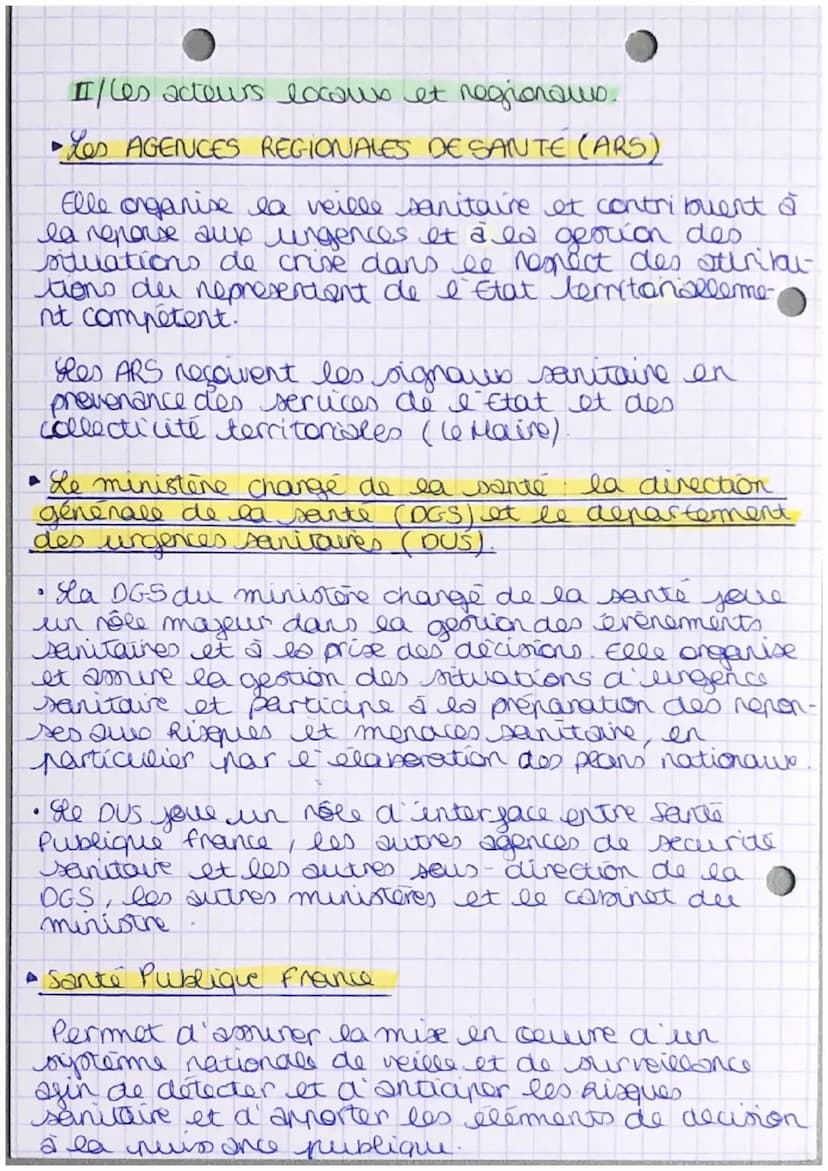 II/Les acteurs locaux et regionaux.
▸Les AGENCES REGIONALES DE SANTÉ (ARS)
Elle organise la veille sanitaire et contribuent à
la reponse aux urgences et à la gestion des
situations de crise dans le respect des attribu-
tions du representant de l'Etat territorialleme-
nt compétent.
Les ARS reçoivent les signaux sanitaire en
prevenance des services de l'Etat et des
collectivité territoriales (le Maire)
▸Le ministère chargé de la santé : la direction
générale de la santé (DGS) et le departement
des urgences sanitaires (DUS).
• La DGS du ministère chargé de la santé joue
un rôle majeur dans la gestion des évènements
sanitaires et à la prise des décisions. Elle organise
et assure la gestion des situations d'urgence
sanitaire et participe à la préparation des repon-
ses aux Risques et menaces sanitaire, en
particulier par l'élaboration des plans nationaux.
• Le DUS joue un rôle d'interface entre Santé
Publique france, les autres agences de securité
sanitaire et les autres sous-direction de la
DGS, les autres ministères et le cabinet du
ministre.
▸Santé Publique France
Permet d'assurer la mise en oeuvre d'un
système nationale de veille et de surveillance
afin de détecter et d'anticiper les risques
sanitaire et d'apporter les éléments de decision
à la puissance publique.